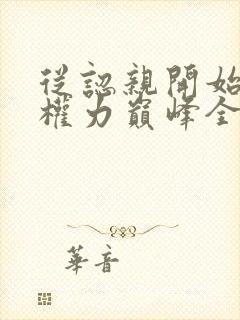 從認親開始
權力巔峰全
華音